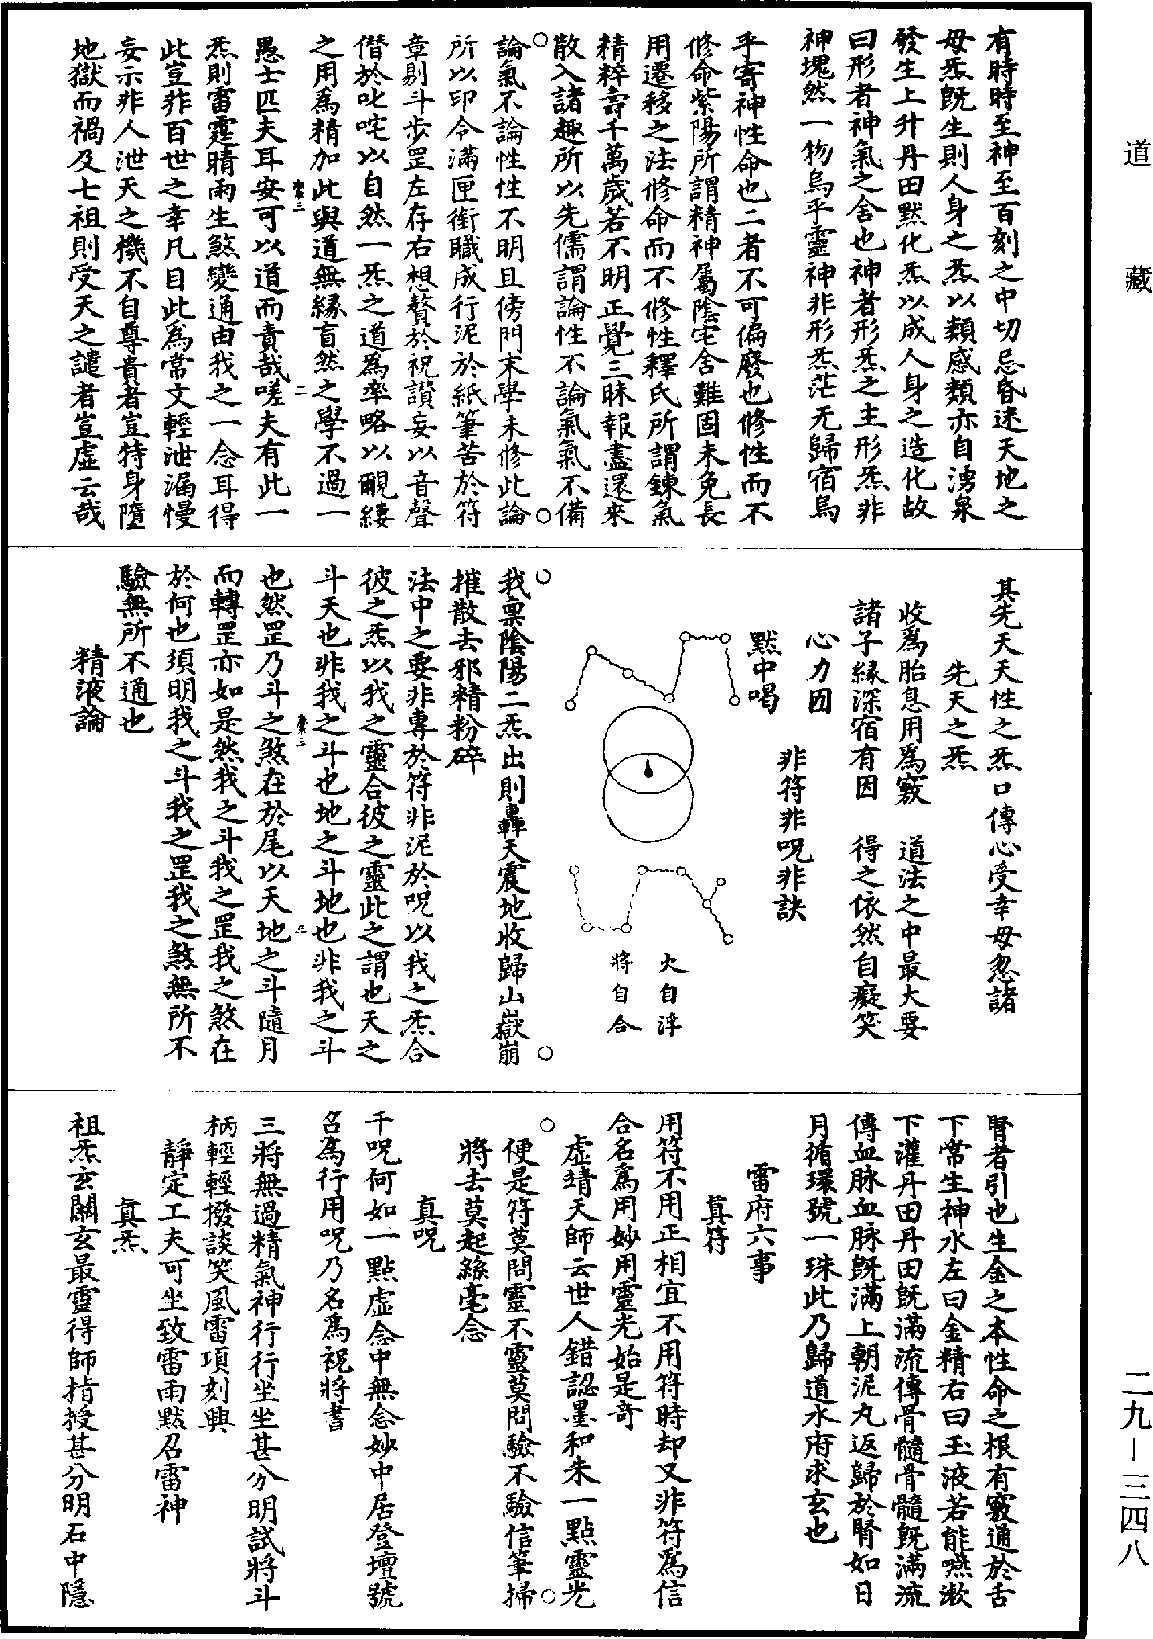 道藏
有時時至神至百刻之中切忌昏迷天地之
母炁既生則人身之炁以類感類亦自湧泉
發生上升丹田默化炁以成人身之造化故
曰形者神氣之舍也神者形炁之主形炁非
神塊然一物烏乎靈神非形炁茫无歸宿烏
乎寄神性命也二者不可偏廢也修性而不
修命紫陽所謂精神屬陰宅舍難固未免長
用遷移之法修命而不修性釋氏所謂鍊氣
精粹壽千萬歲若不明正覺三昧報盡還來
散入諸趣所以先儒謂論性不論氣氣不備
論氣不論性性不明且傍門末學未修此論
所以印令滿匣銜職成行泥於紙筆苦於符
章剔斗步罡左存右想贅於祝讚妄以音聲
僭於叱咤以自然一炁之道為率略以䚄縷
之用為精加此與道無緣盲然之學不過一
愚士匹夫耳安可以道而責哉嗟夫有此一
炁則雷霆晴雨生煞變通由我之一念耳得
此豈非百世之幸凡目此為常文輕泄漏慢
妄示非人泄天之機不自尊貴者豈特身墮
地獄而禍及七祖則受天之譴者豈虛云哉
其先天天性之炁口傳心受幸毋忽諸
先天之炁
收為胎息用為竅　道法之中最大要
諸子緣深宿有因　得之依然自癡笑
心力因
非符非呪非訣
默中喝
火自浮
將自合
我稟陰陽二炁出則轟天震地收歸山嶽崩
摧散去邪精粉碎
法中之要非專於符非泥於呪以我之炁合
彼之炁以我之靈合彼之靈此之謂也天之
斗天也非我之斗也地之斗地也非我之斗
也然罡乃斗之煞在於尾以天地之斗隨月
而轉罡亦如是然我之斗我之罡我之煞在
於何也須明我之斗我之罡我之煞無所不
驗無所不通也
精液論
腎者引也生金之本性命之根有竅通於舌
下常生神水左曰金精右曰玉液若能嚥漱
下灌丹田丹田既滿流傳骨髓骨髓既滿流
傳血脉血脉既滿上朝泥丸返歸於腎如日
月循環號一珠此乃歸道水府求玄也
雷府六事
真符
用符不用正相宜不用符時却又非符為信
合名為用妙用靈光始是奇
虛靖天師云世人錯認墨和朱一點靈光
便是符莫問靈不靈莫問驗不驗信筆掃
將去莫起絲毫念
真呪
千呪何如一點虛念中無念妙中居登壇號
召為行用呪乃名為祝將書
三將無過精氣神行行坐坐甚分明試將斗
柄輕輕撥談笑風雷項刻興
靜定工夫可坐致雷雨默召雷神
真炁
祖炁玄關玄最靈得師指授甚分明石中隱
二九－三四八